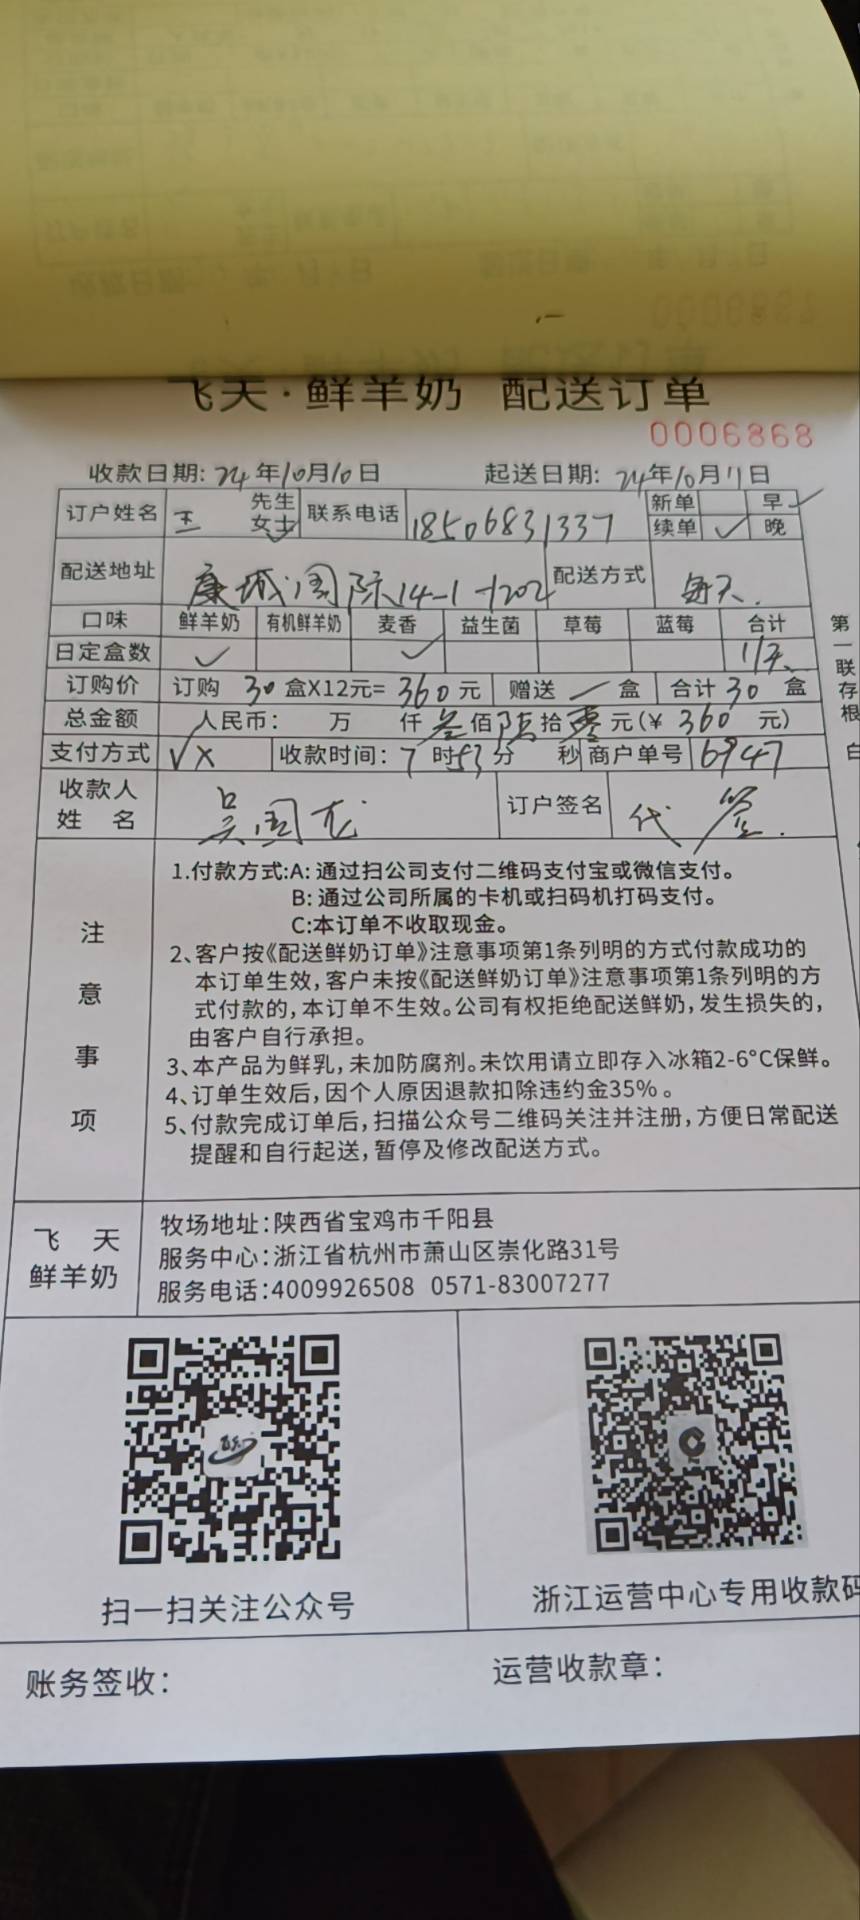 飞天·鲜羊奶 配送订单
0006868
收款日期: 24年10月10日 起送日期: 24年10月11日
订户姓名 王 先生 女士✓ 联系电话 18506831337 新单 续单✓ 早✓ 晚
配送地址 康城国际14-1-1202 配送方式 每天.
口味 鲜羊奶 有机鲜羊奶 麦香 益生菌 草莓 蓝莓 合计
日定盒数 ✓ ✓ 1/天
订购价 订购 30 盒X12元= 360 元 赠送 / 盒 合计 30 盒
总金额 人民币: 万 仟 叁佰 陆拾 零元(￥ 360 元)
支付方式 √X 收款时间: 7时53分 秒 商户单号 6947
收款人姓名 吴国龙 订户签名 代签.
注意事项
1.付款方式:A: 通过扫公司支付二维码支付宝或微信支付。
B: 通过公司所属的卡机或扫码机打码支付。
C:本订单不收取现金。
2、客户按《配送鲜奶订单》注意事项第1条列明的方式付款成功的
本订单生效,客户未按《配送鲜奶订单》注意事项第1条列明的方
式付款的,本订单不生效。公司有权拒绝配送鲜奶,发生损失的,
由客户自行承担。
3、本产品为鲜乳,未加防腐剂。未饮用请立即存入冰箱2-6°C保鲜。
4、订单生效后,因个人原因退款扣除违约金35%。
5、付款完成订单后,扫描公众号二维码关注并注册,方便日常配送
提醒和自行起送,暂停及修改配送方式。
飞天
鲜羊奶
牧场地址:陕西省宝鸡市千阳县
服务中心:浙江省杭州市萧山区崇化路31号
服务电话:4009926508 0571-83007277
扫一扫关注公众号
浙江运营中心专用收款码
账务签收:
运营收款章:
第一联存根 白